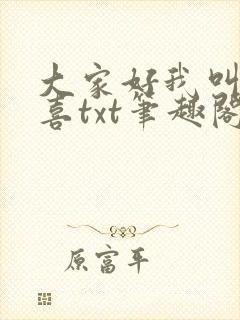 大家好我叫
喜txt笔趣阁
原富平